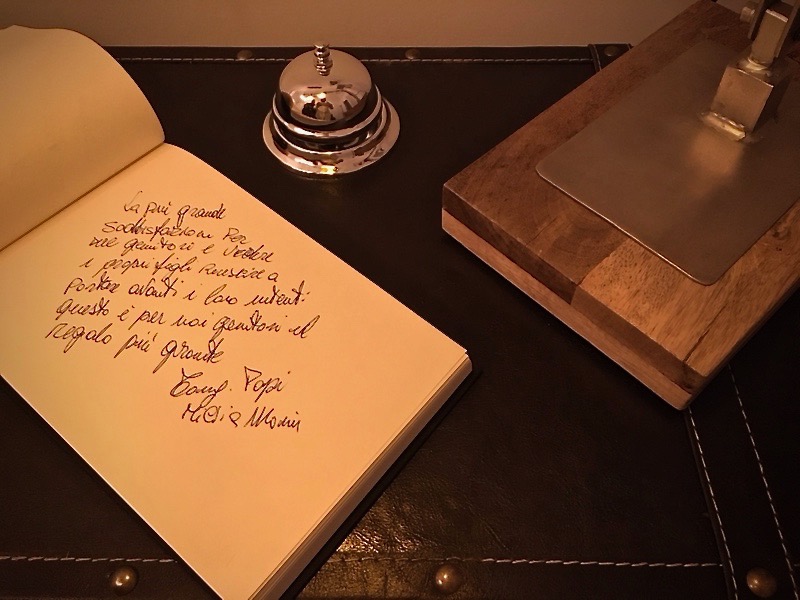 La più grande
soddisfazioni per
noi genitori e vedere
i propri figli riuscire a
portare avanti i loro intenti:
questo è per noi genitori il
regalo più grande
Papi